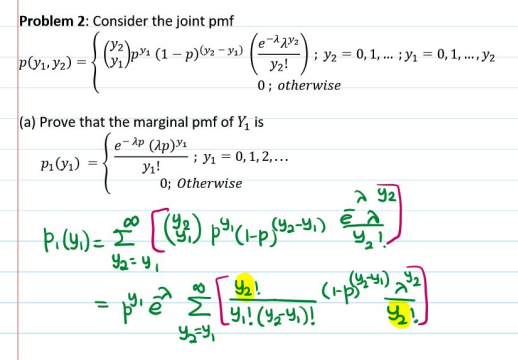 Problem 2: Consider the joint pmf
p(y₁, y₂) = { (y₂ y₁) p^y₁ (1 − p)^(y₂ − y₁) (e^−λ λ^y₂ / y₂!) ; y₂ = 0, 1, … ; y₁ = 0, 1, …, y₂
0 ; otherwise
(a) Prove that the marginal pmf of Y₁ is
p₁(y₁) = { e^−λp (λp)^y₁ / y₁! ; y₁ = 0, 1, 2, …
0; Otherwise
p₁(y₁) = ∞ Σ y₂ = y₁ [ (y₂ y₁) p^y₁ (1-p)^(y₂-y₁) e^-λ λ^y₂ / y₂! ]
= p^y₁ e^-λ ∞ Σ y₂=y₁ [ y₂! / y₁! (y₂-y₁)! (1-p)^(y₂-y₁) λ^y₂ / y₂! ]